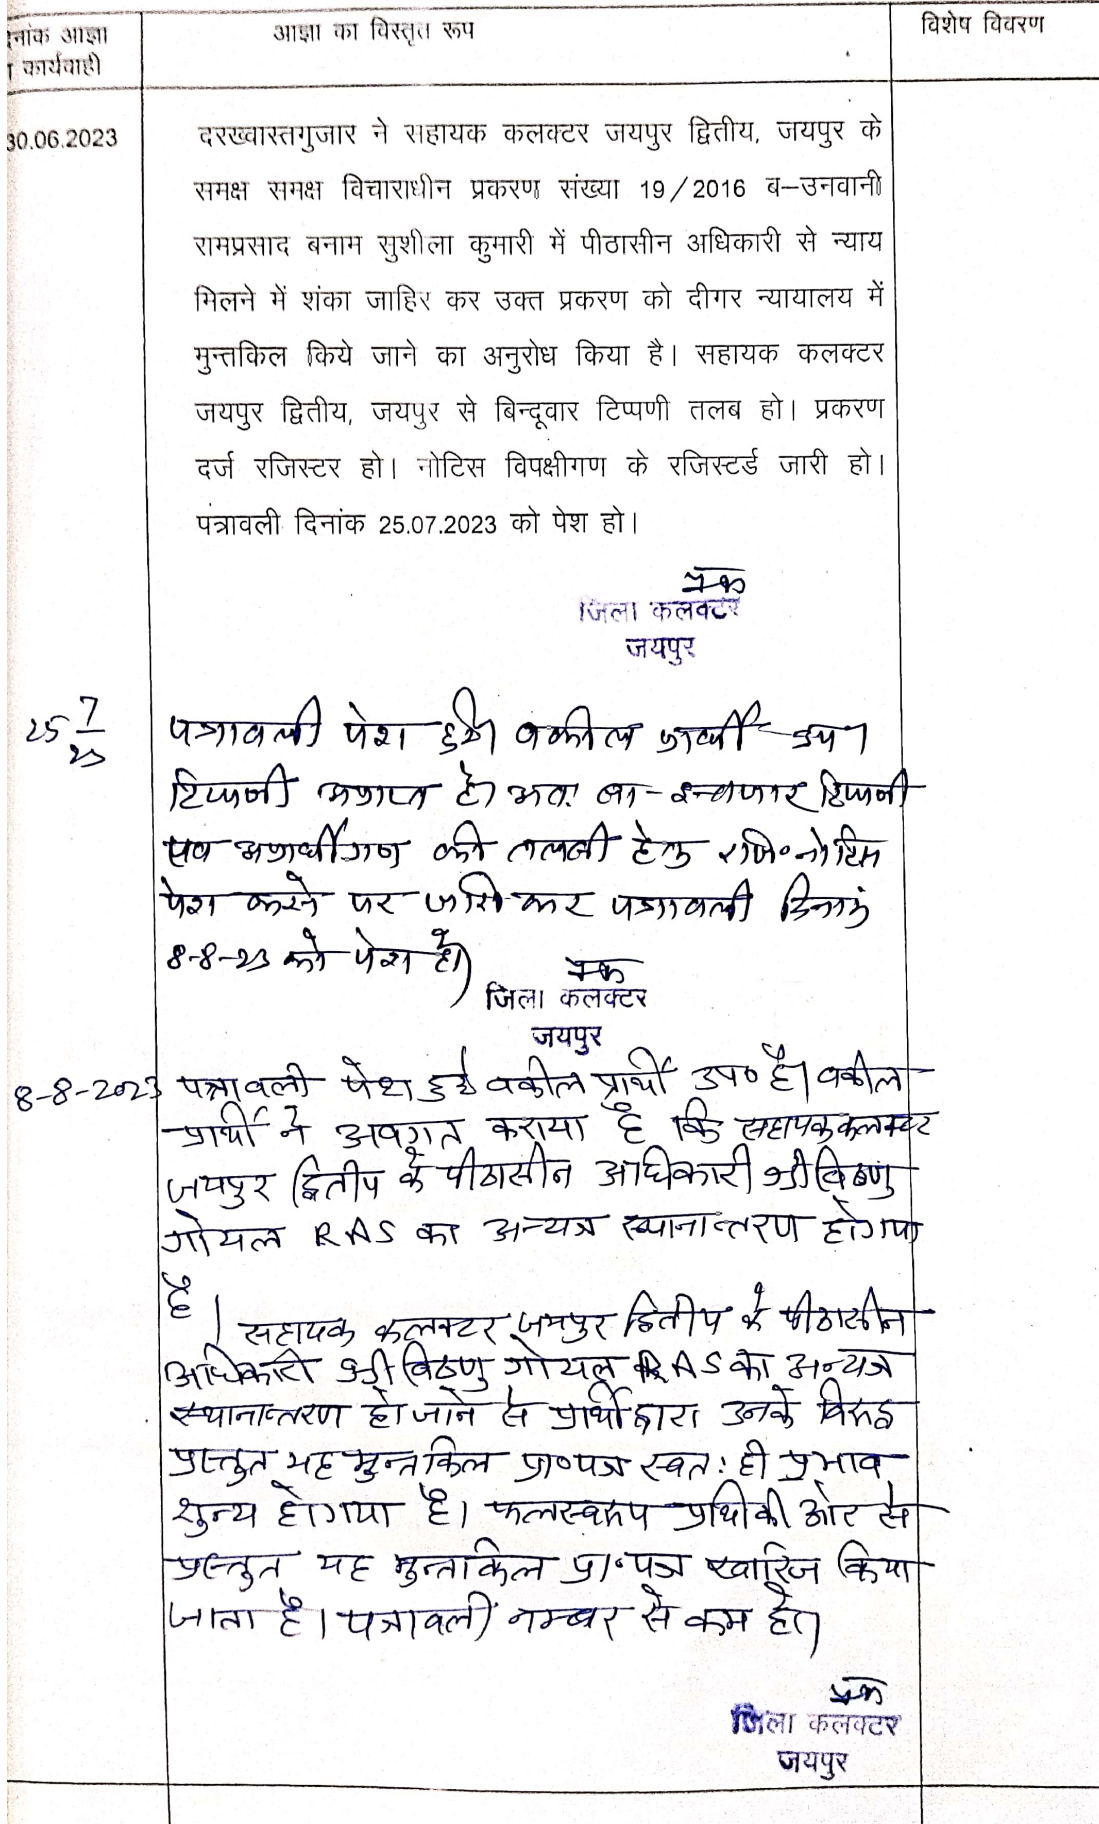 दिनांक आज्ञा
कार्यवाही
आज्ञा का विस्तृत रूप
विशेष विवरण
30.06.2023
दरख्वास्तगुजार ने सहायक कलक्टर जयपुर द्वितीय, जयपुर के
समक्ष समक्ष विचाराधीन प्रकरण संख्या 19/2016 ब–उनवानी
रामप्रसाद बनाम सुशीला कुमारी में पीठासीन अधिकारी से न्याय
मिलने में शंका जाहिर कर उक्त प्रकरण को दीगर न्यायालय में
मुन्तकिल किये जाने का अनुरोध किया है। सहायक कलक्टर
जयपुर द्वितीय, जयपुर से बिन्दूवार टिप्पणी तलब हो। प्रकरण
दर्ज रजिस्टर हो। नोटिस विपक्षीगण के रजिस्टर्ड जारी हो।
पंत्रावली दिनांक 25.07.2023 को पेश हो।
जिला कलक्टर
जयपुर
25 7/23
पत्रावली पेश हुई। वकील प्रार्थी उप।
टिप्पणी अप्राप्त है। अतः बा-इन्तजार टिप्पणी
एवं अप्रार्थीगण की तलबी हेतु रजि॰ नोटिस
पेश करने पर जारी कर पत्रावली दिनांक
8-8-23 को पेश हो।
जिला कलक्टर
जयपुर
8-8-2023
पत्रावली पेश हुई वकील प्रार्थी उप॰ है। वकील
प्रार्थी ने अवगत कराया है कि सहायक कलक्टर
जयपुर द्वितीय के पीठासीन अधिकारी श्री विष्णु
गोयल RAS का अन्यत्र स्थानान्तरण होगया
है।
सहायक कलक्टर जयपुर द्वितीय के पीठासीन
अधिकारी श्री विष्णु गोयल RAS का अन्यत्र
स्थानान्तरण हो जाने से प्रार्थी द्वारा उनके विरूद्ध
प्रस्तुत यह मुन्तकिल प्रा॰पत्र स्वतः ही प्रभाव
शुन्य होगया है। फलस्वरूप प्रार्थी की ओर से
प्रस्तुत यह मुन्तकिल प्रा॰पत्र खारिज किया
जाता है। पत्रावली नम्बर से कम हो।
जिला कलक्टर
जयपुर